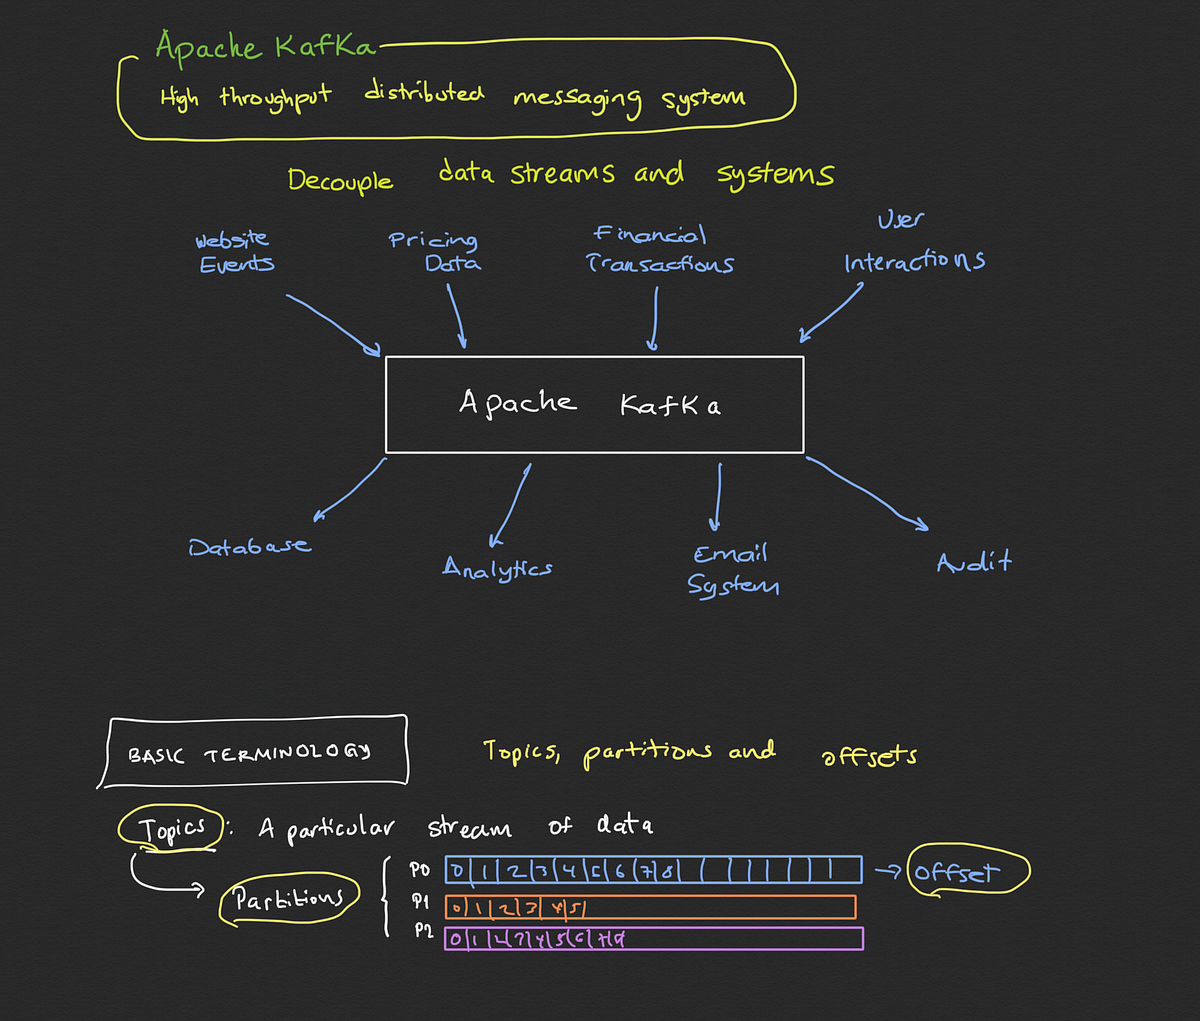 Apache Kafka
High throughput distributed messaging system
Decouple data streams and systems
Website Events
Pricing Data
Financial Transactions
User Interactions
Apache Kafka
Database
Analytics
Email System
Audit
BASIC TERMINOLOGY
Topics, partitions and offsets
Topics: A particular stream of data
Partitions
P0 0 1 2 3 4 5 6 7 8 → offset
P1 0 1 2 3 4 5
P2 0 1 4 5 6 7